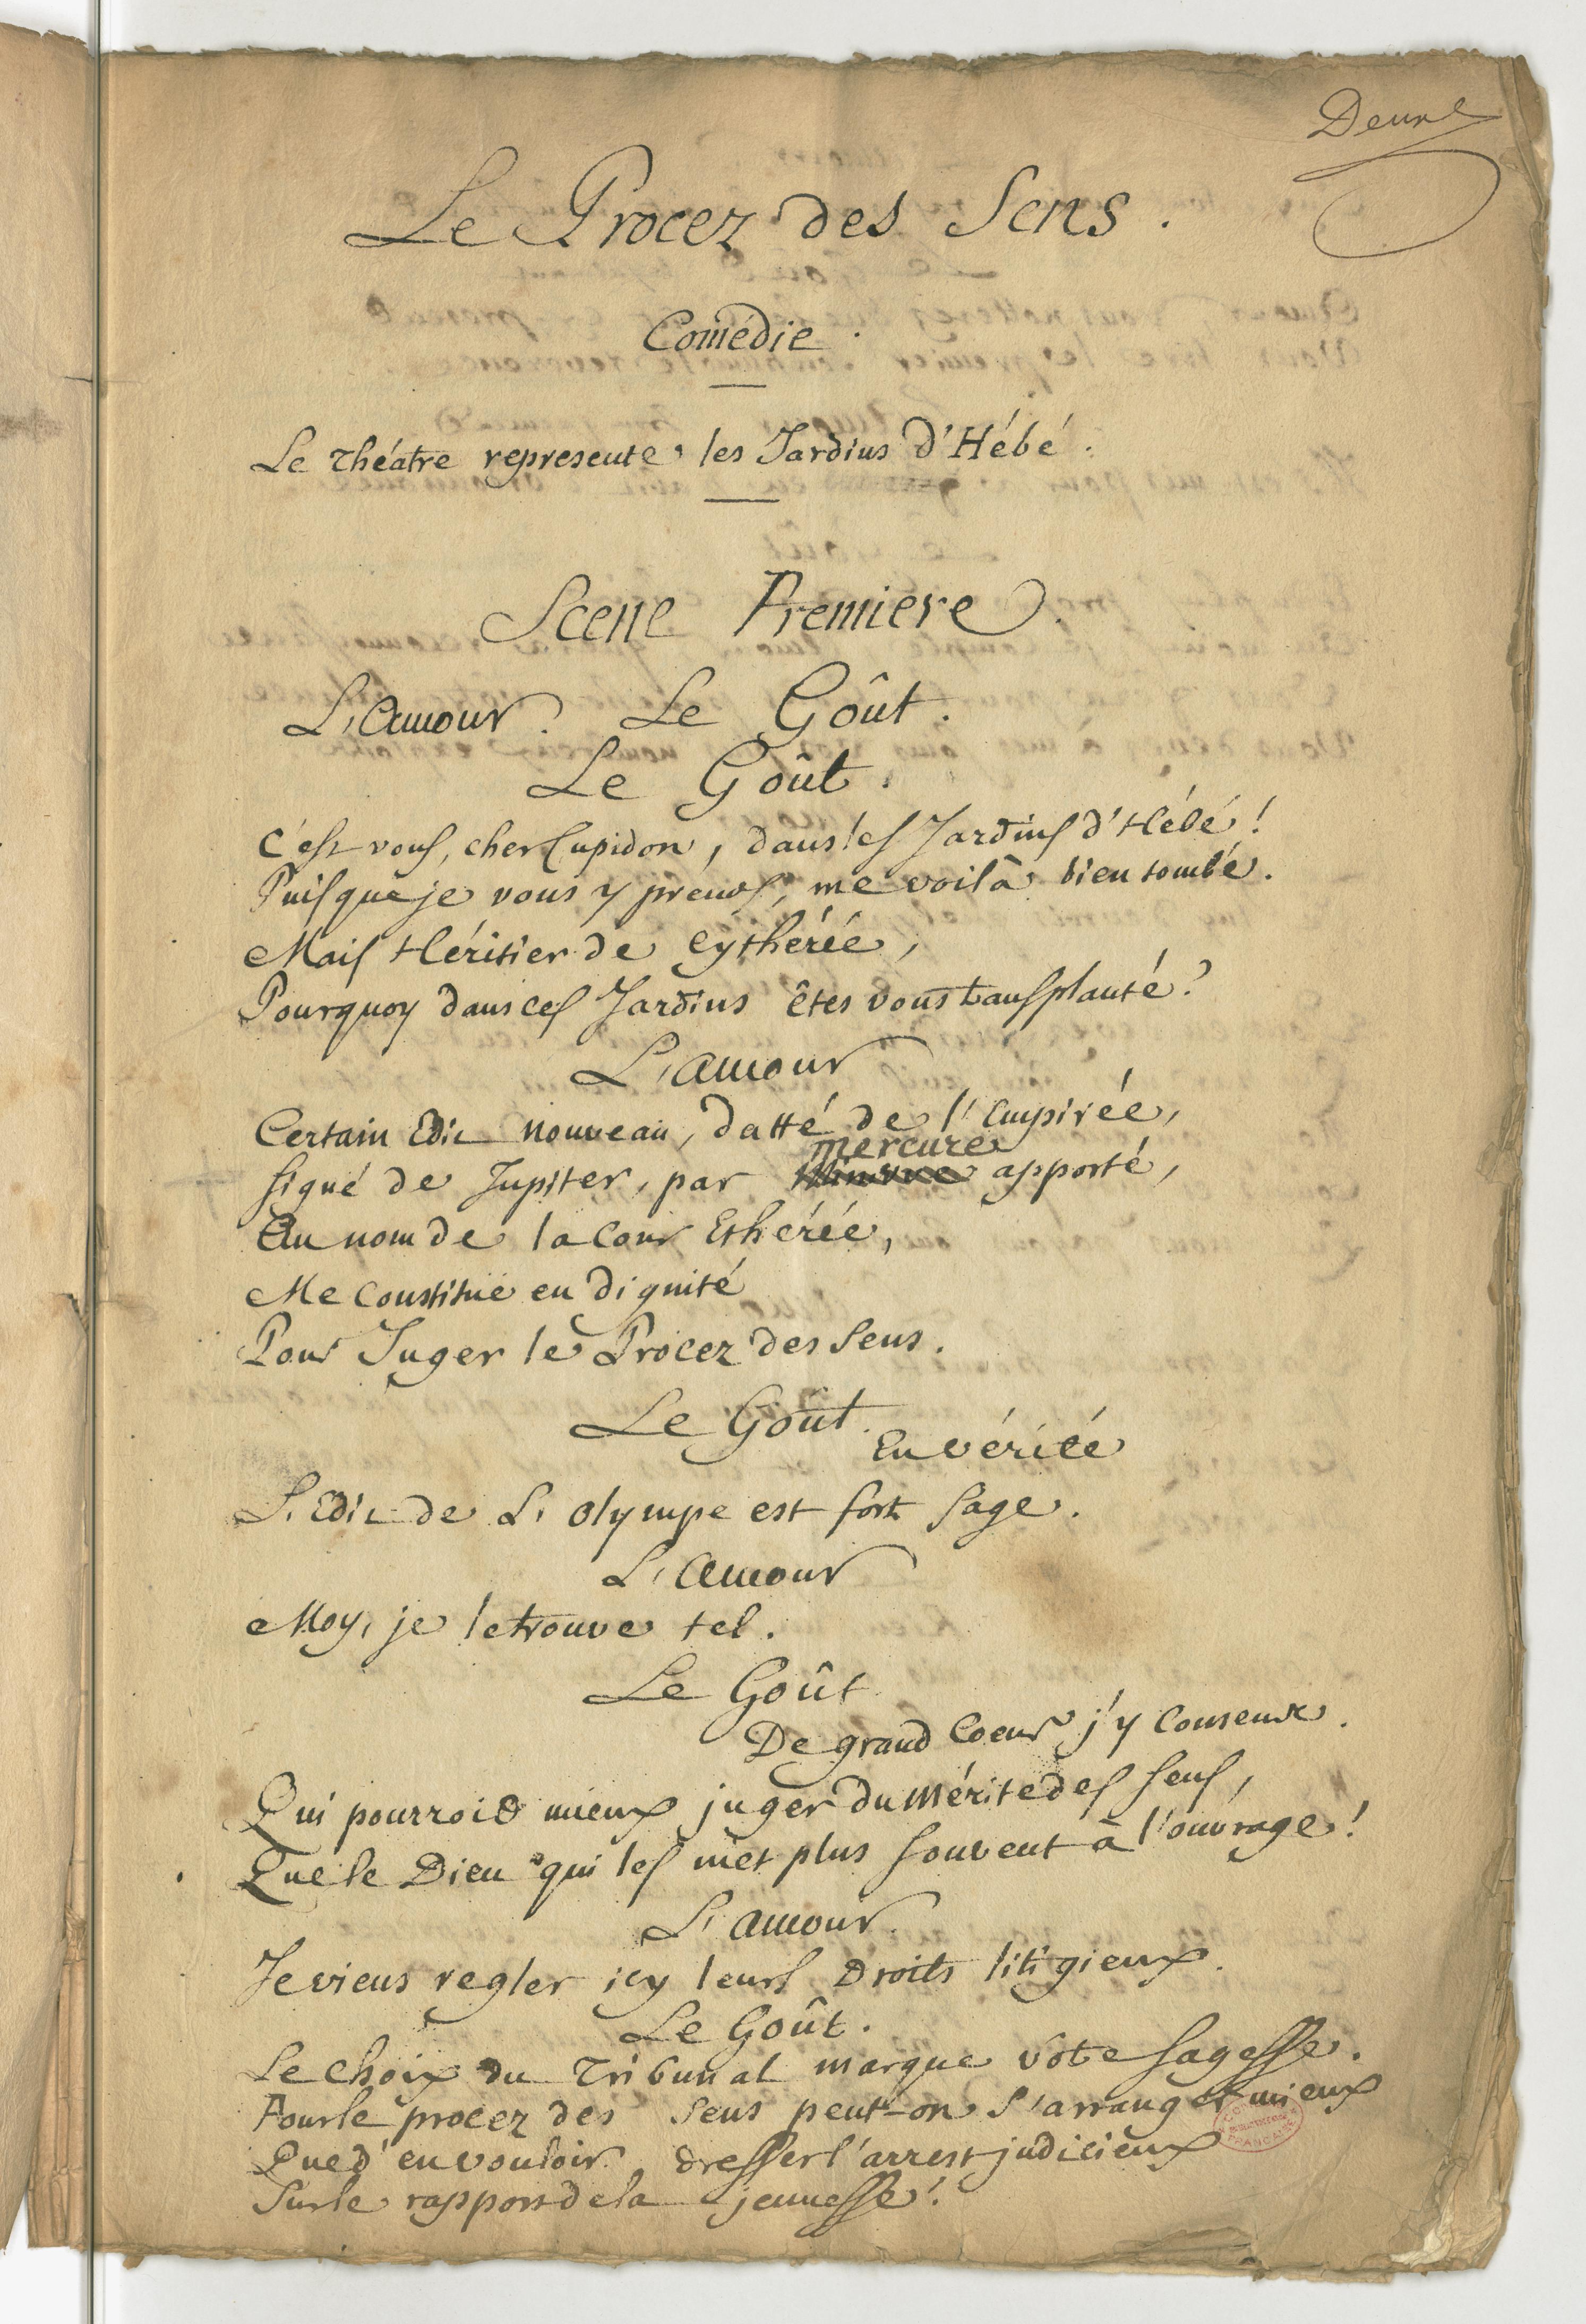 Le Procez des Sens.
Comédie.
Le théatre represente les Jardins d'Hébé.
Scene Premiere.
L'Amour. Le Goût.
Le Goût.
C'est vous, cher Cupidon, dans les Jardins d'Hébé!
Puisque je vous y prends, me voilà bien tombé.
Mais Héritier de Cythérée,
Pourquoy dans ces Jardins êtes vous transplanté?
L'Amour
Certain Edit nouveau, datté de l'Empirée,
signé de Jupiter, par Mercure apporté,
Au nom de la Cour Ethérée,
Me constitue en dignité
Pour Juger le Procez des Sens.
Le Goût.
En vérité
L'Edit de L'Olympe est fort sage.
L'Amour
Moy, je le trouve tel.
Le Goût
De grand Coeur j'y consens.
Qui pourroit mieux juger du mérite des sens,
Que le Dieu qui les met plus souvent à l'ouvrage!
L'Amour.
Je viens regler icy leurs Droits litigieux.
Le Goût.
Le choix du Tribunal marque vôtre sagesse.
Pour le procez des Sens peut-on s'arranger mieux
Que d'en vouloir dresser l'arrest judicieux
Sur le rapport de la jeunesse!